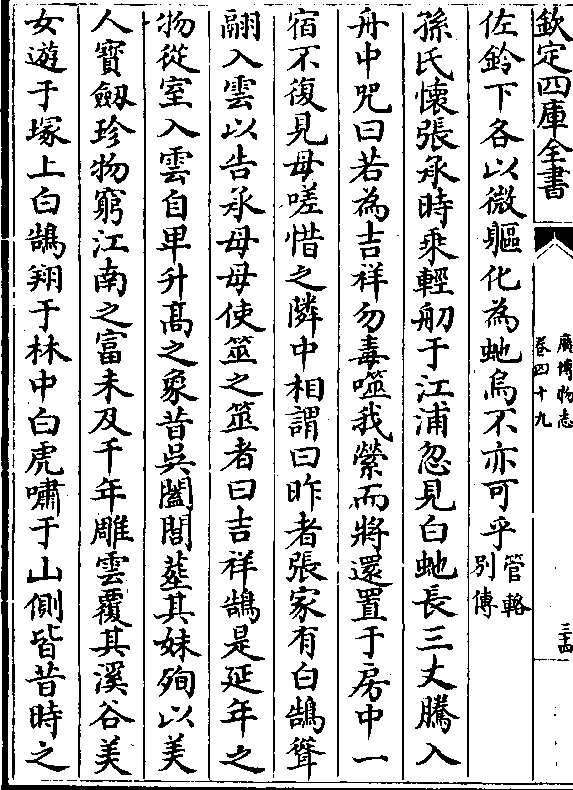 欽定四庫全書
廣博物志
卷四十九
三十四
佐鈴下各以微軀化為虵烏不亦可乎管輅
别傳
孫氏懷張承時乘輕舠于江浦忽見白虵長三丈騰入
舟中呪曰若為吉祥勿毒噬我縈而將還置于房中一
宿不復見母嗟惜之隣中相謂曰昨者張家有白鵠聳
翮入雲以告承母母使筮之筮者曰吉祥鵠是延年之
物從室入雲自甲升髙之象昔吳闔閭塟其妹殉以美
人寳劔珍物窮江南之富未及千年雕雲覆其溪谷美
女遊于塚上白鵠翔于林中白虎嘯于山側皆昔時之